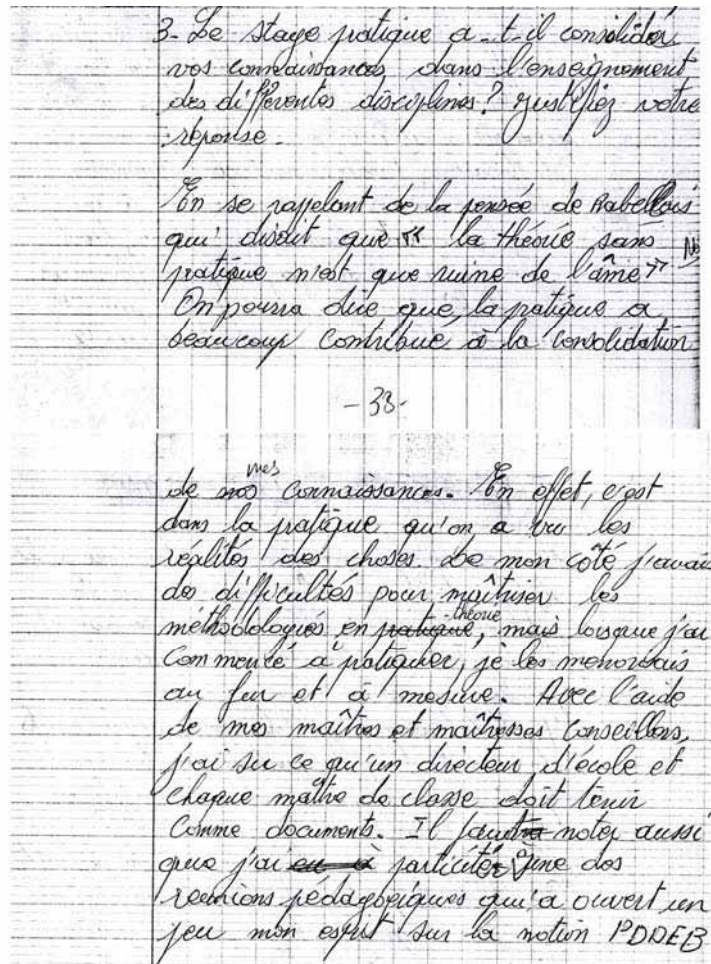 3- Le stage pratique a-t-il consolider
vos connaissances dans l'enseignement
des différentes disciplines? justifiez votre
réponse.
En se rappelant de la pensée de Rabellais
qui disait que « la théorie sans
pratique n'est que ruine de l'âme »
On pourra dire que, la pratique a
beaucoup contribué à la consolidation
-33-
de mes connaissances. En effet, c'est
dans la pratique qu'on a vu les
réalités des choses. De mon côté j'avais
des difficultés pour maîtriser les
méthodologies en théorie, mais lorsque j'ai
commencé à pratiquer, je les memorisais
au fur et à mesure. Avec l'aide
de mes maîtres et maîtresses conseillers,
j'ai su ce qu'un directeur d'école et
chaque maître de classe doit tenir
comme documents. Il faut noter aussi
que j'ai participé à une des
reunions pédagogiques qui a ouvert un
peu mon esprit sur la notion PDDEB